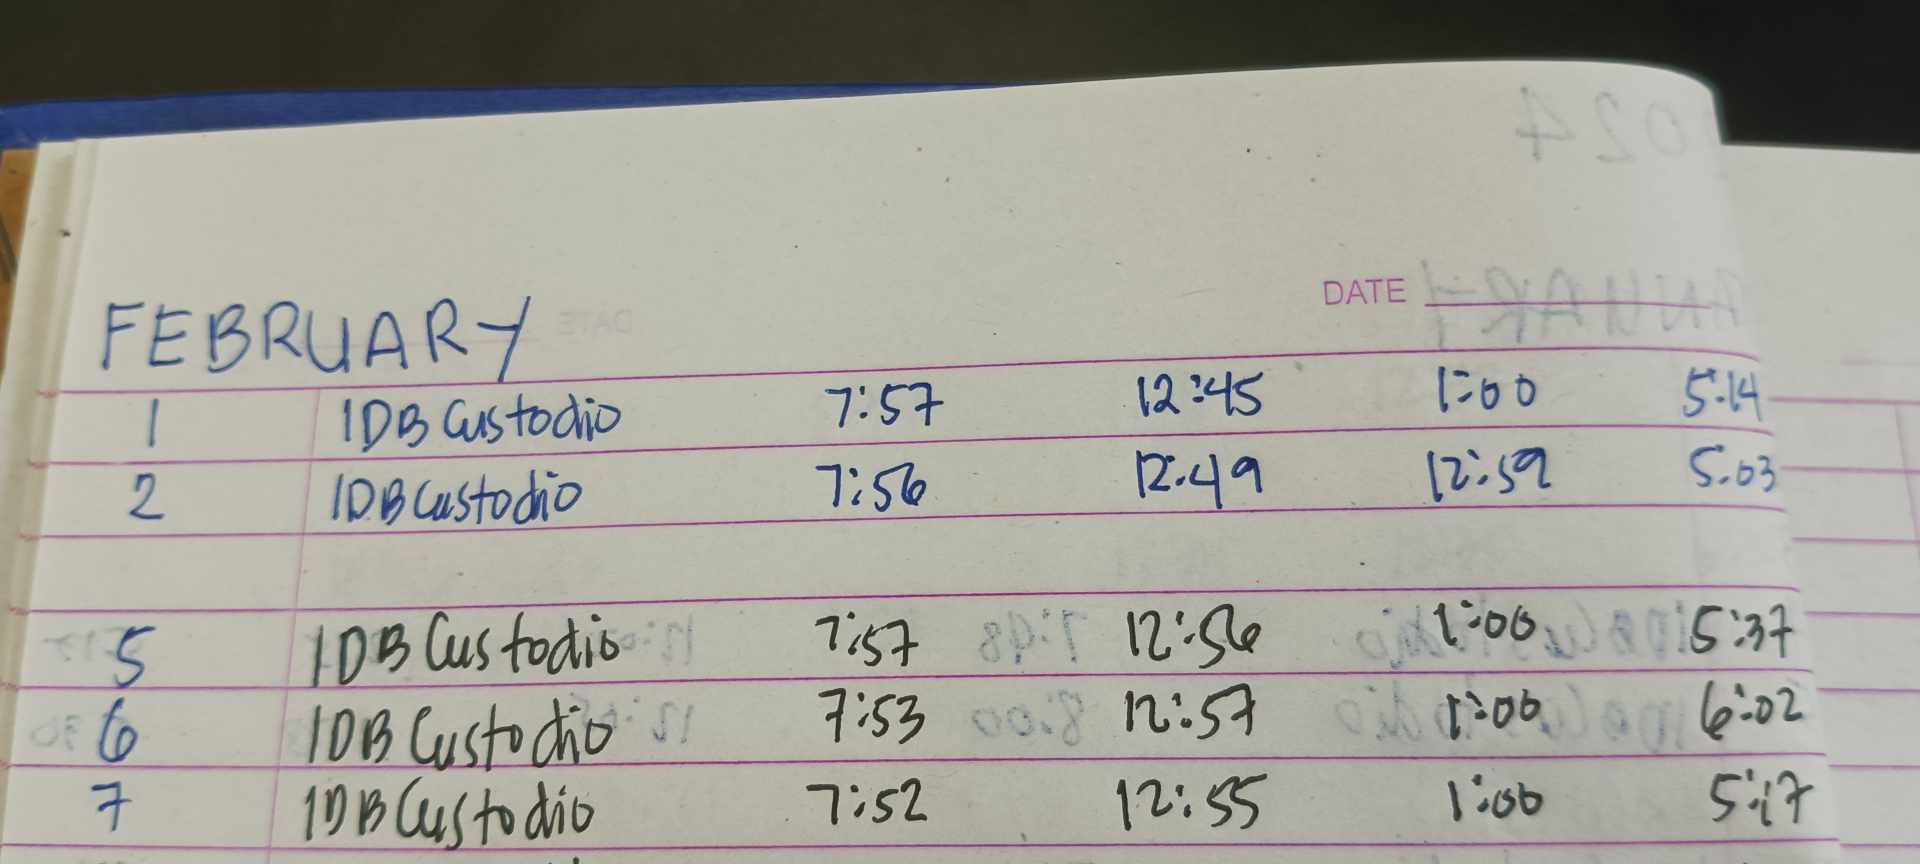 DATE
FEBRUARY
1 IDB Custodio 7:57 12:45 1:00 5:14
2 IDB Custodio 7:56 12:49 12:59 5:03
5 IDB Custodio 7:57 12:56 1:00 5:37
6 IDB Custodio 7:53 12:57 1:00 6:02
7 IDB Custodio 7:52 12:55 1:00 5:17